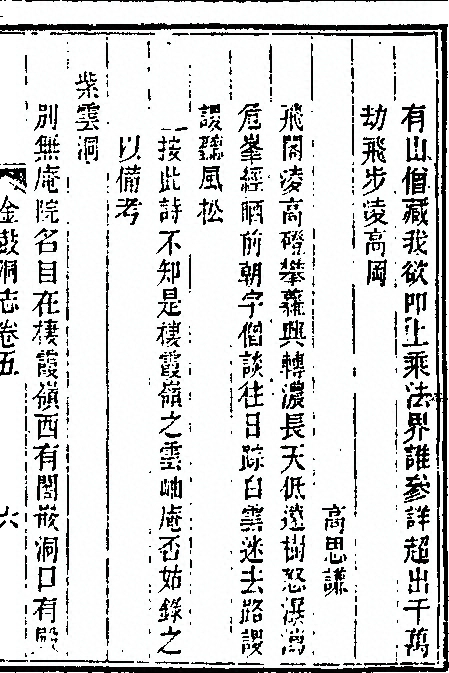 有山僧藏我欲叩上乘法界誰參詳超出千萬
劫飛步凌高岡
高思謙
飛閣凌高磴攀蘿興轉濃長天低遠樹怒瀑瀉
危峯經晒前朝字僧談往日踪白雲迷去路謖
謖聽風松
按此詩不知是棲霞嶺之雲岫庵否姑錄之
以備考
紫雲洞
別無庵院名目在棲霞嶺西有閣嵌洞口有殿
金鼓洞志卷五
六